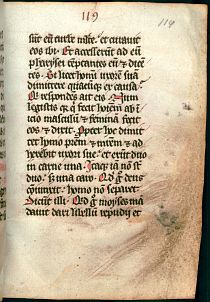 119
114
sūt eū turbe mltē. et curavit
eos ibi. Et accesserūt ad eū
pharysei tēptantes eū & dicē
tes. Si licet homī uxorē suā
dimittere quacūq; ex causa.
Q̄ respondēs ait eis. Nōn
legistis q̄ q̄ fecit hoīem ab ī
icio masculū & feminā fecit
eos & dixit. Ppter hoc dimit
tet homo pr̄em & mr̄em & ad
herebit uxori sue. et erūt duo
in carne una. Itaq̄ iā nō st̄
duo. ß una caro. Qd g̊ deus
cōiunxit. homo nō separet.
Dicūt illi. Qd g̊ moyses mā
davit dari libellū repudij et